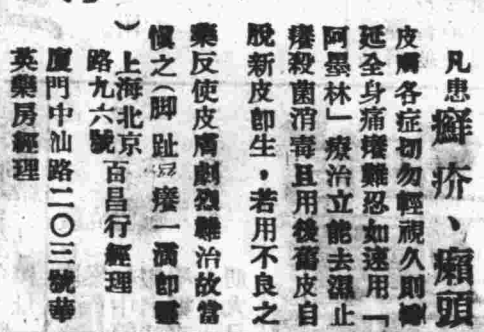 凡患癬疥、癩頭
皮膚各症切勿輕視久則
延全身痛癢難忍如速用「
阿墨林」療治立能去濕止
癢殺菌消毒且用後舊皮自
脫新皮即生，若用不良之
藥反使皮膚劇烈難治故當
慎之（脚趾癢一滴即
）上海北京
路九六號百昌行經理
廈門中山路二〇三號華
英藥房經理